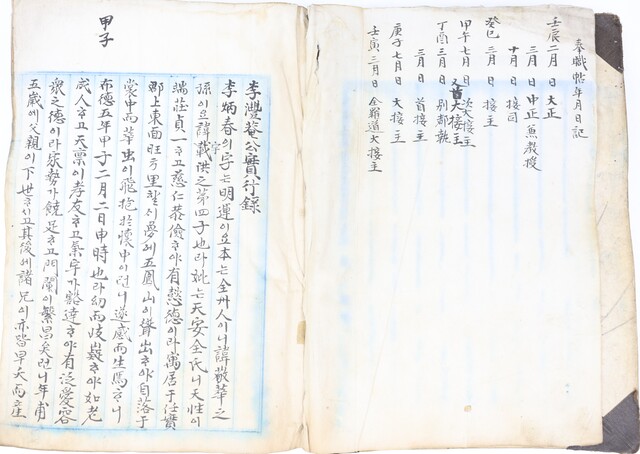 奉職帖年月日記
壬辰二月 日 大正
三月 日 中正 兼 教授
十月 日 接司
癸巳 三月 日 接主
甲午七月 日 次大接主
又首大接主
丁酉 三月 日 別都執
三月 日 首接主
庚子七月 日 大接主
壬寅 三月 日 全羅道大接主
甲子
李灃菴公實行錄
李炳春의字는明運이요本은全州人이니諱敬華之
孫이요諱載洪之第四子也라妣는天安全氏니天性이
端莊貞一ᄒᆞ고慈仁恭儉ᄒᆞ야有懿德이라寓居于任實
郡上東面旺方里ᄒᆞᆯ시夢에五鳳山이聳出ᄒᆞ야自落于
裳中而草虫이飛抱於懷中이러니遂感而生焉ᄒᆞ니
布德五年甲子二月二日申時也라幼而岐嶷ᄒᆞ야如老
成人ᄒᆞ고天禀이孝友ᄒᆞ고氣宇가豁達ᄒᆞ야有泛愛容
衆之德이라家勢가饒足ᄒᆞ고門闌이繁昌矣러니年甫
五歲에父親이下世ᄒᆞ시고其後에諸兄이亦皆早夭而産